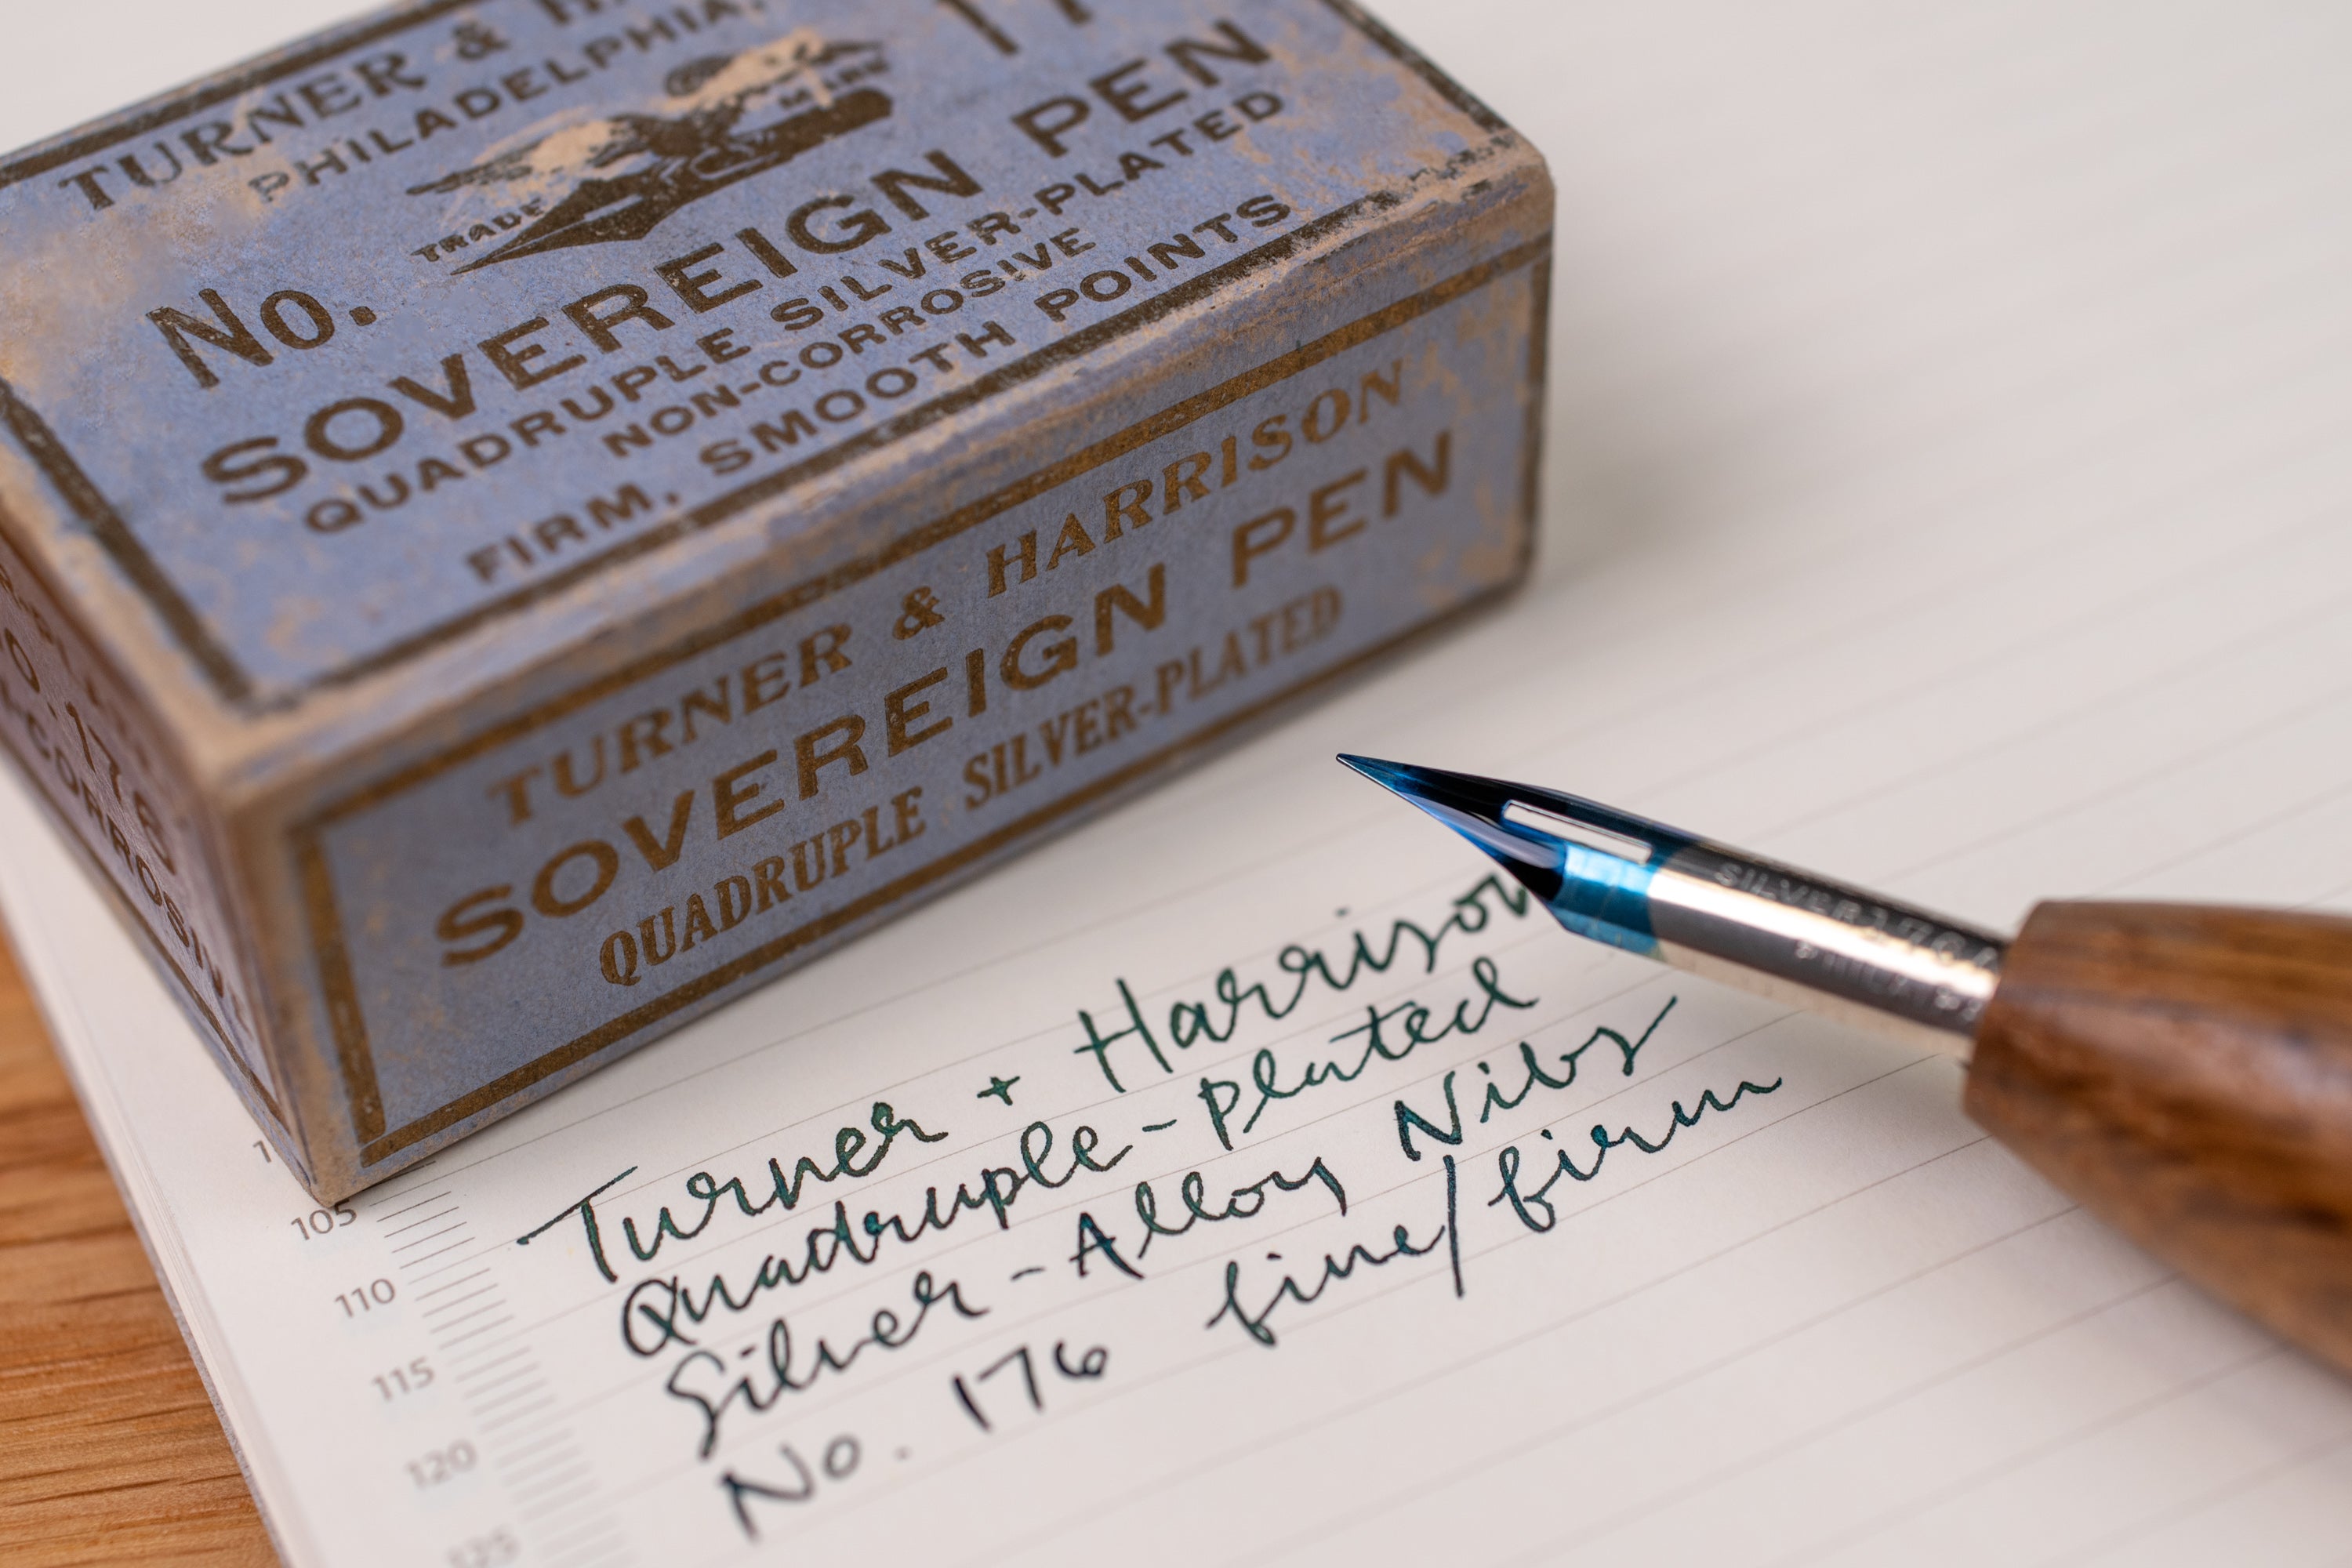 TURNER & H
PHILADELPHIA,
TRADE MARK
No. 17
SOVEREIGN PEN
QUADRUPLE SILVER-PLATED
NON-CORROSIVE
FIRM, SMOOTH POINTS
TURNER & HARRISON
SOVEREIGN PEN
QUADRUPLE SILVER-PLATED
NO. 176
CORROSIV
SILVER
Turner + Harrison
Quadruple-plated
Silver-Alloy Nibs
No. 176 fine/firm
105
110
115
120
125